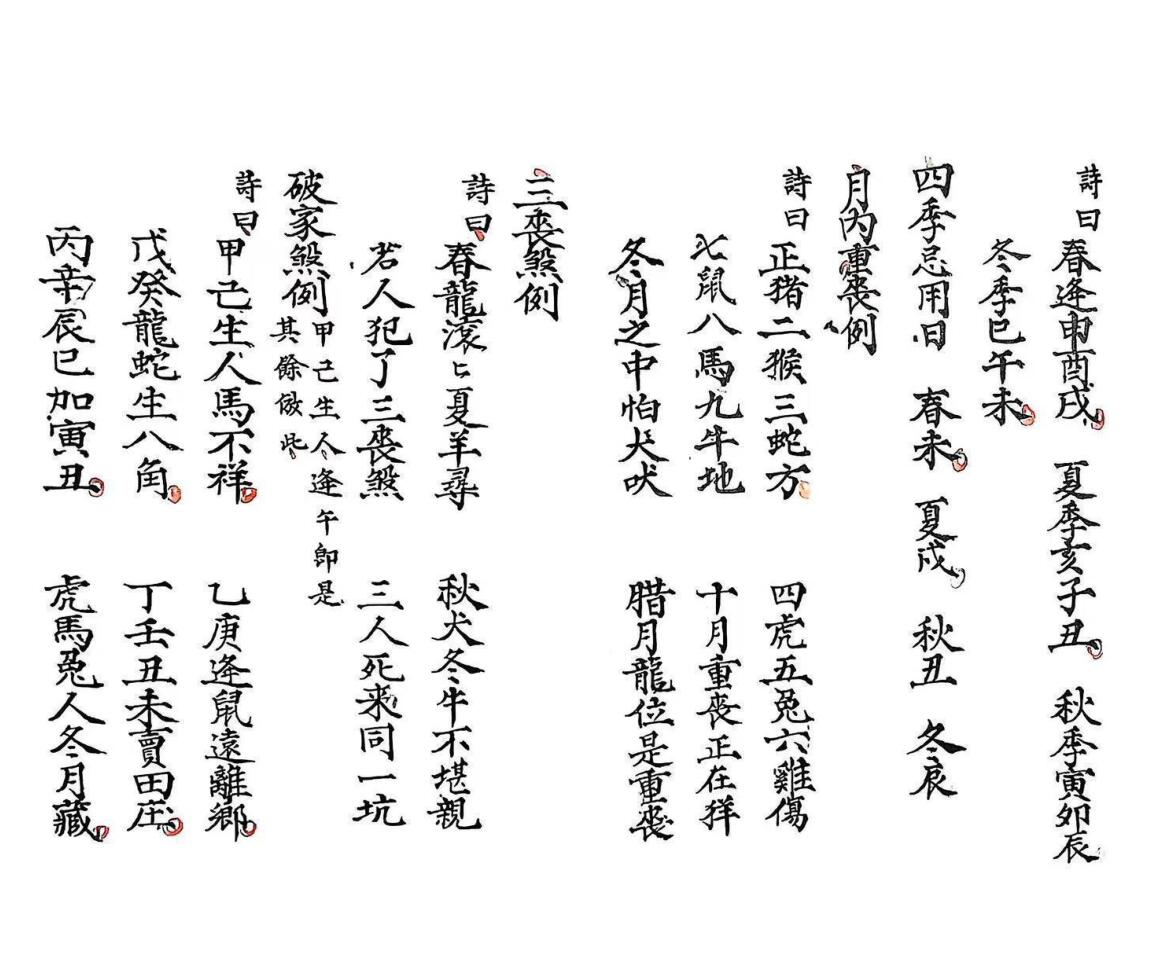 詩曰春逢申酉戌　夏季亥子丑　秋季寅卯辰
冬季巳午未
四季忌用日　春未　夏戌　秋丑　冬辰
月內重喪例
詩曰正猪二猴三蛇方　四虎五兔六雞傷
七鼠八馬九牛地　十月重喪正在羊
冬月之中怕犬吠　腊月龍位是重喪
三喪煞例
詩曰春龍滾〻夏羊尋　秋犬冬牛不堪親
若人犯了三喪煞　三人死来同一坑
破家煞例
甲己生人逢午即是
其餘倣此
詩曰甲己生人馬不祥　乙庚逢鼠遠離鄉
戊癸龍蛇生八角　丁壬丑未賣田庄
丙辛辰巳加寅丑　虎馬兔人冬月藏